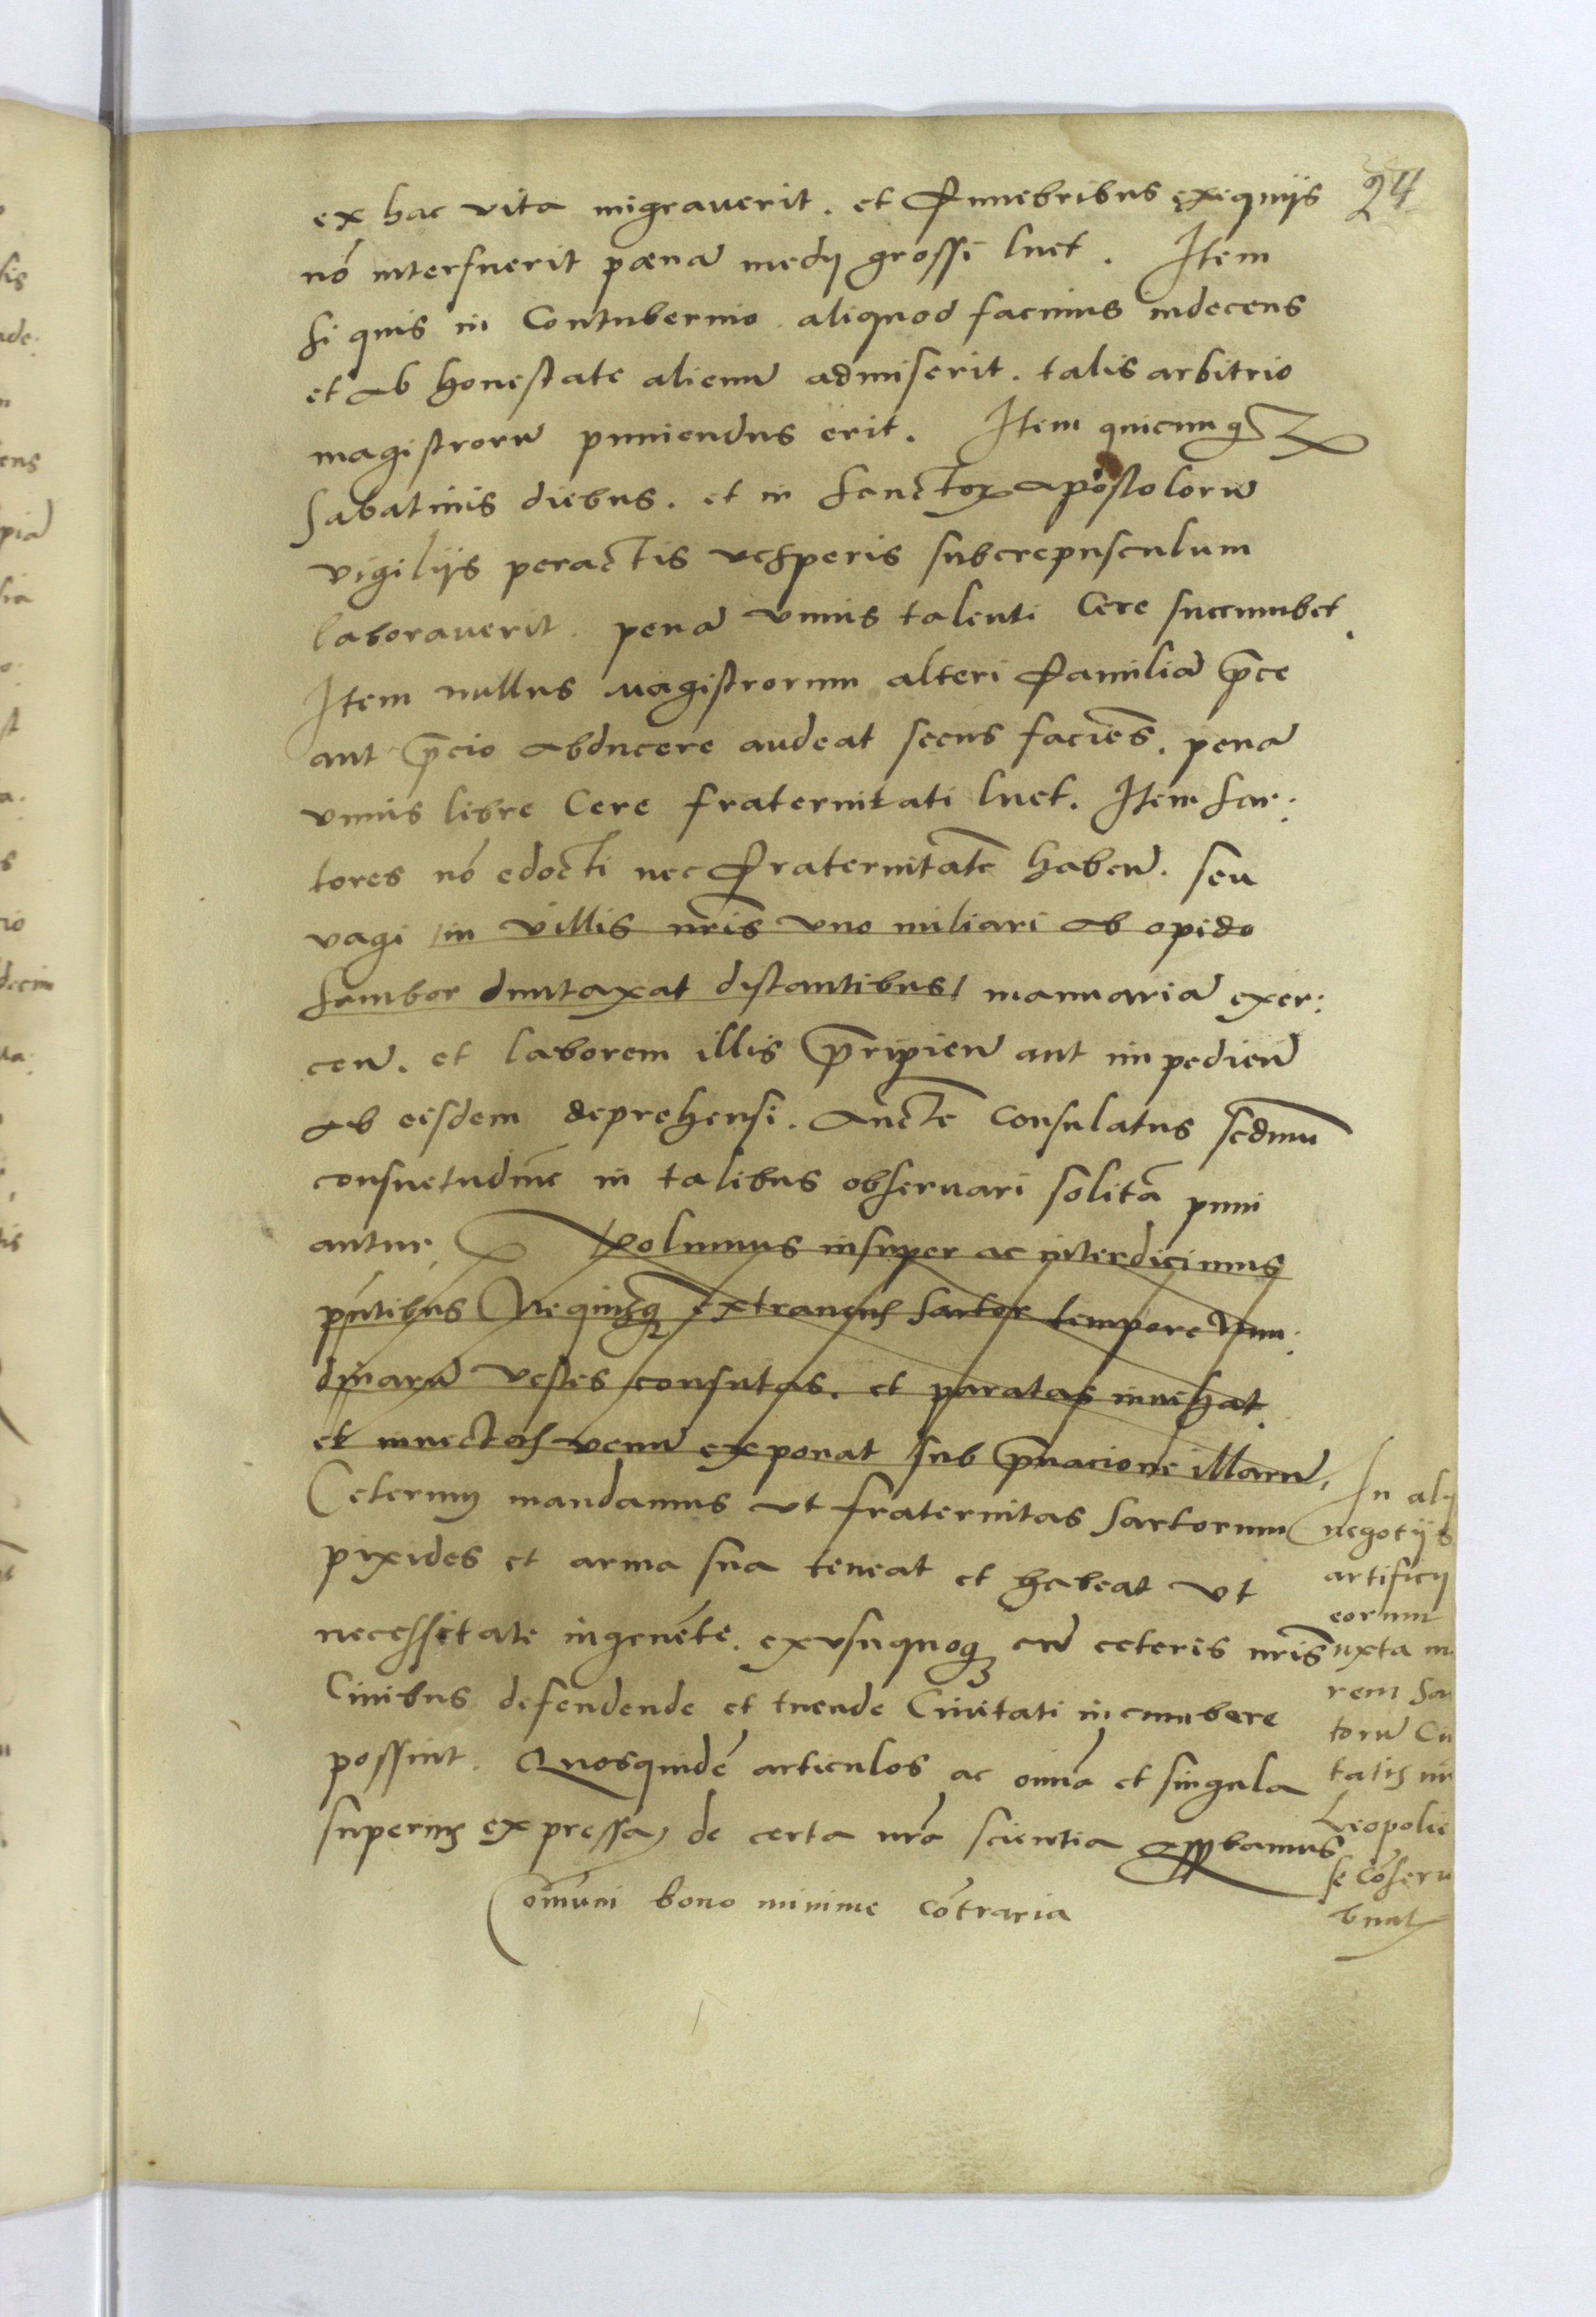 24
ex hac vita migrauerit. et Funebribus exequijs
nō interfuerit pœnā medij grossi luet. Item
si quis in Contubernio aliquod facinus indecens
et ab honestate alienū admiserit. talis arbitrio
magistrorū puniendus erit. Item quicunq3
Sabatinis diebus. et in sanctoꝝ apostolorū
vigilijs peractis vesperis subcrepusculum
laborauerit. pena vnius talenti Cere succumbet.
Item nullus Magistrorum alteri Familiā p̄ce
aut p̄cio abducere audeat secus faciēs. penā
vnius libre Cere fraternitati luet. Item sar:
tores nō edocti nec Fraternitatē habeñ. seu
vagi in villis nr̄is vno miliari ab opido
Sambor duntaxat distantibus manuariā exer:
ceñ. et laborem illis p̄ripieñ aut impedieñ
ab eisdem deprehensi. Aucte Consulatus sedmū
consuetudinē in talibus obseruari solitā puni
antur. Volumus insuper ac interdicimus
pn̄tibus Ne quisq3 extraneus sartor tempore Nun:
dinarū vestes consutas. et paratas inuehat
et inuectas venū exponat sub p̄uacione illarū.
Ceterum mandamus vt fraternitas Sartorum
pixides et arma sua teneat et habeat vt
necessitate ingruēte. ex vsu quoq3 cū ceteris nr̄is
Ciuibus defendende et tuende Ciuitati incumbere
possint. Quosquidē articulos ac oīnia et singula
superius expressa, de certa nr̄a scientia aꝓꝓbamus
Cōmuni bono minime cōtraria
In alij
negotijs
artificij
eorum
iuxta mo
rem Sar
torū Ciui
tatis nr̄
Leopolien
se cōserua
bunt